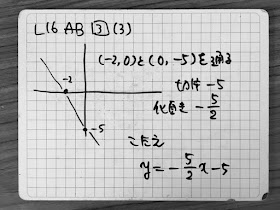 L16 AB 3 (3)
(-2,0)と(0,-5)を通る
-2
切片 -5
傾き -5/2
-5
こたえ
y = -5/2 x - 5